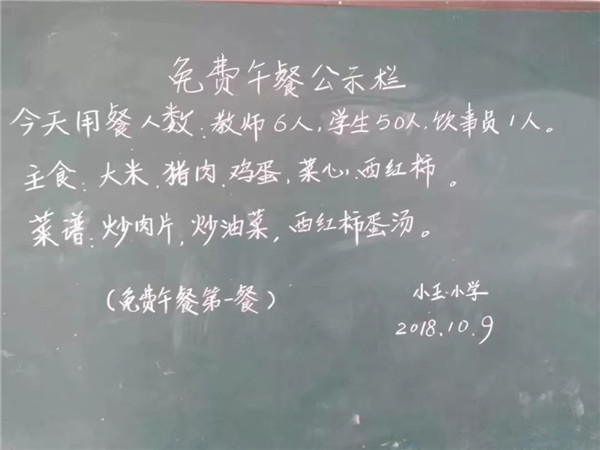 免费午餐公示栏
今天用餐人数:教师6人,学生50人.饮事员1人。
主食:大米.猪肉.鸡蛋,菜心.西红柿。
菜谱:炒肉片,炒油菜,西红柿蛋汤。
(免费午餐第一餐) 小玉小学
2018.10.9